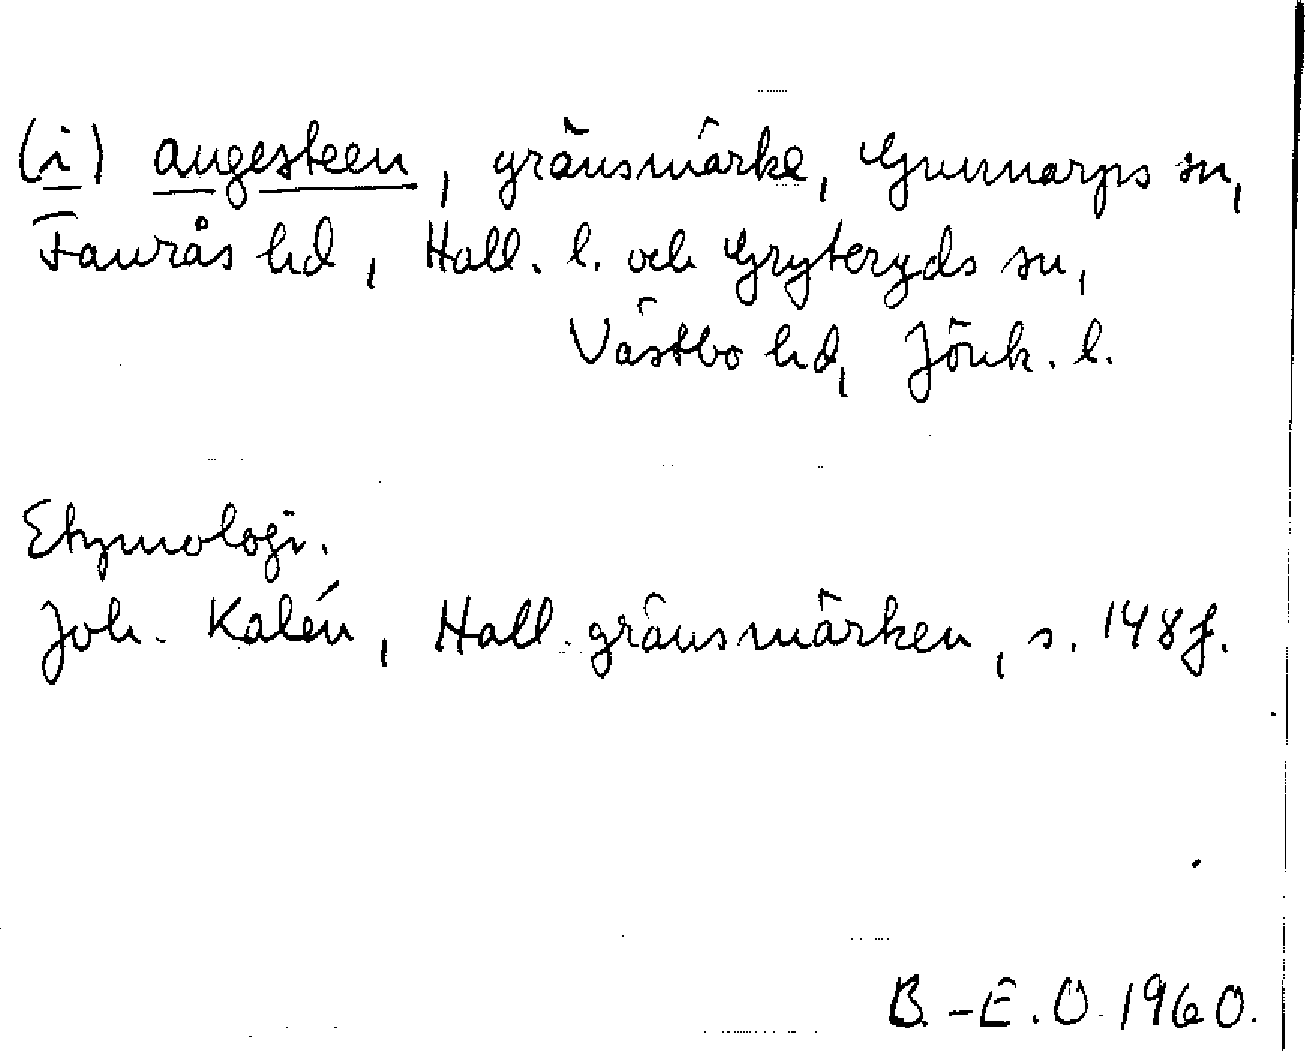 (i) angesteen, gränsmärke, Gunnarps sn,
Faurås hd, Hall. l. och Gryteryds sn,
Västbo hd, Jönk. l.
Etymologi.
Joh. Kalén, Hall. gränsmärken, s. 148 f.
B.-E. O 1960.